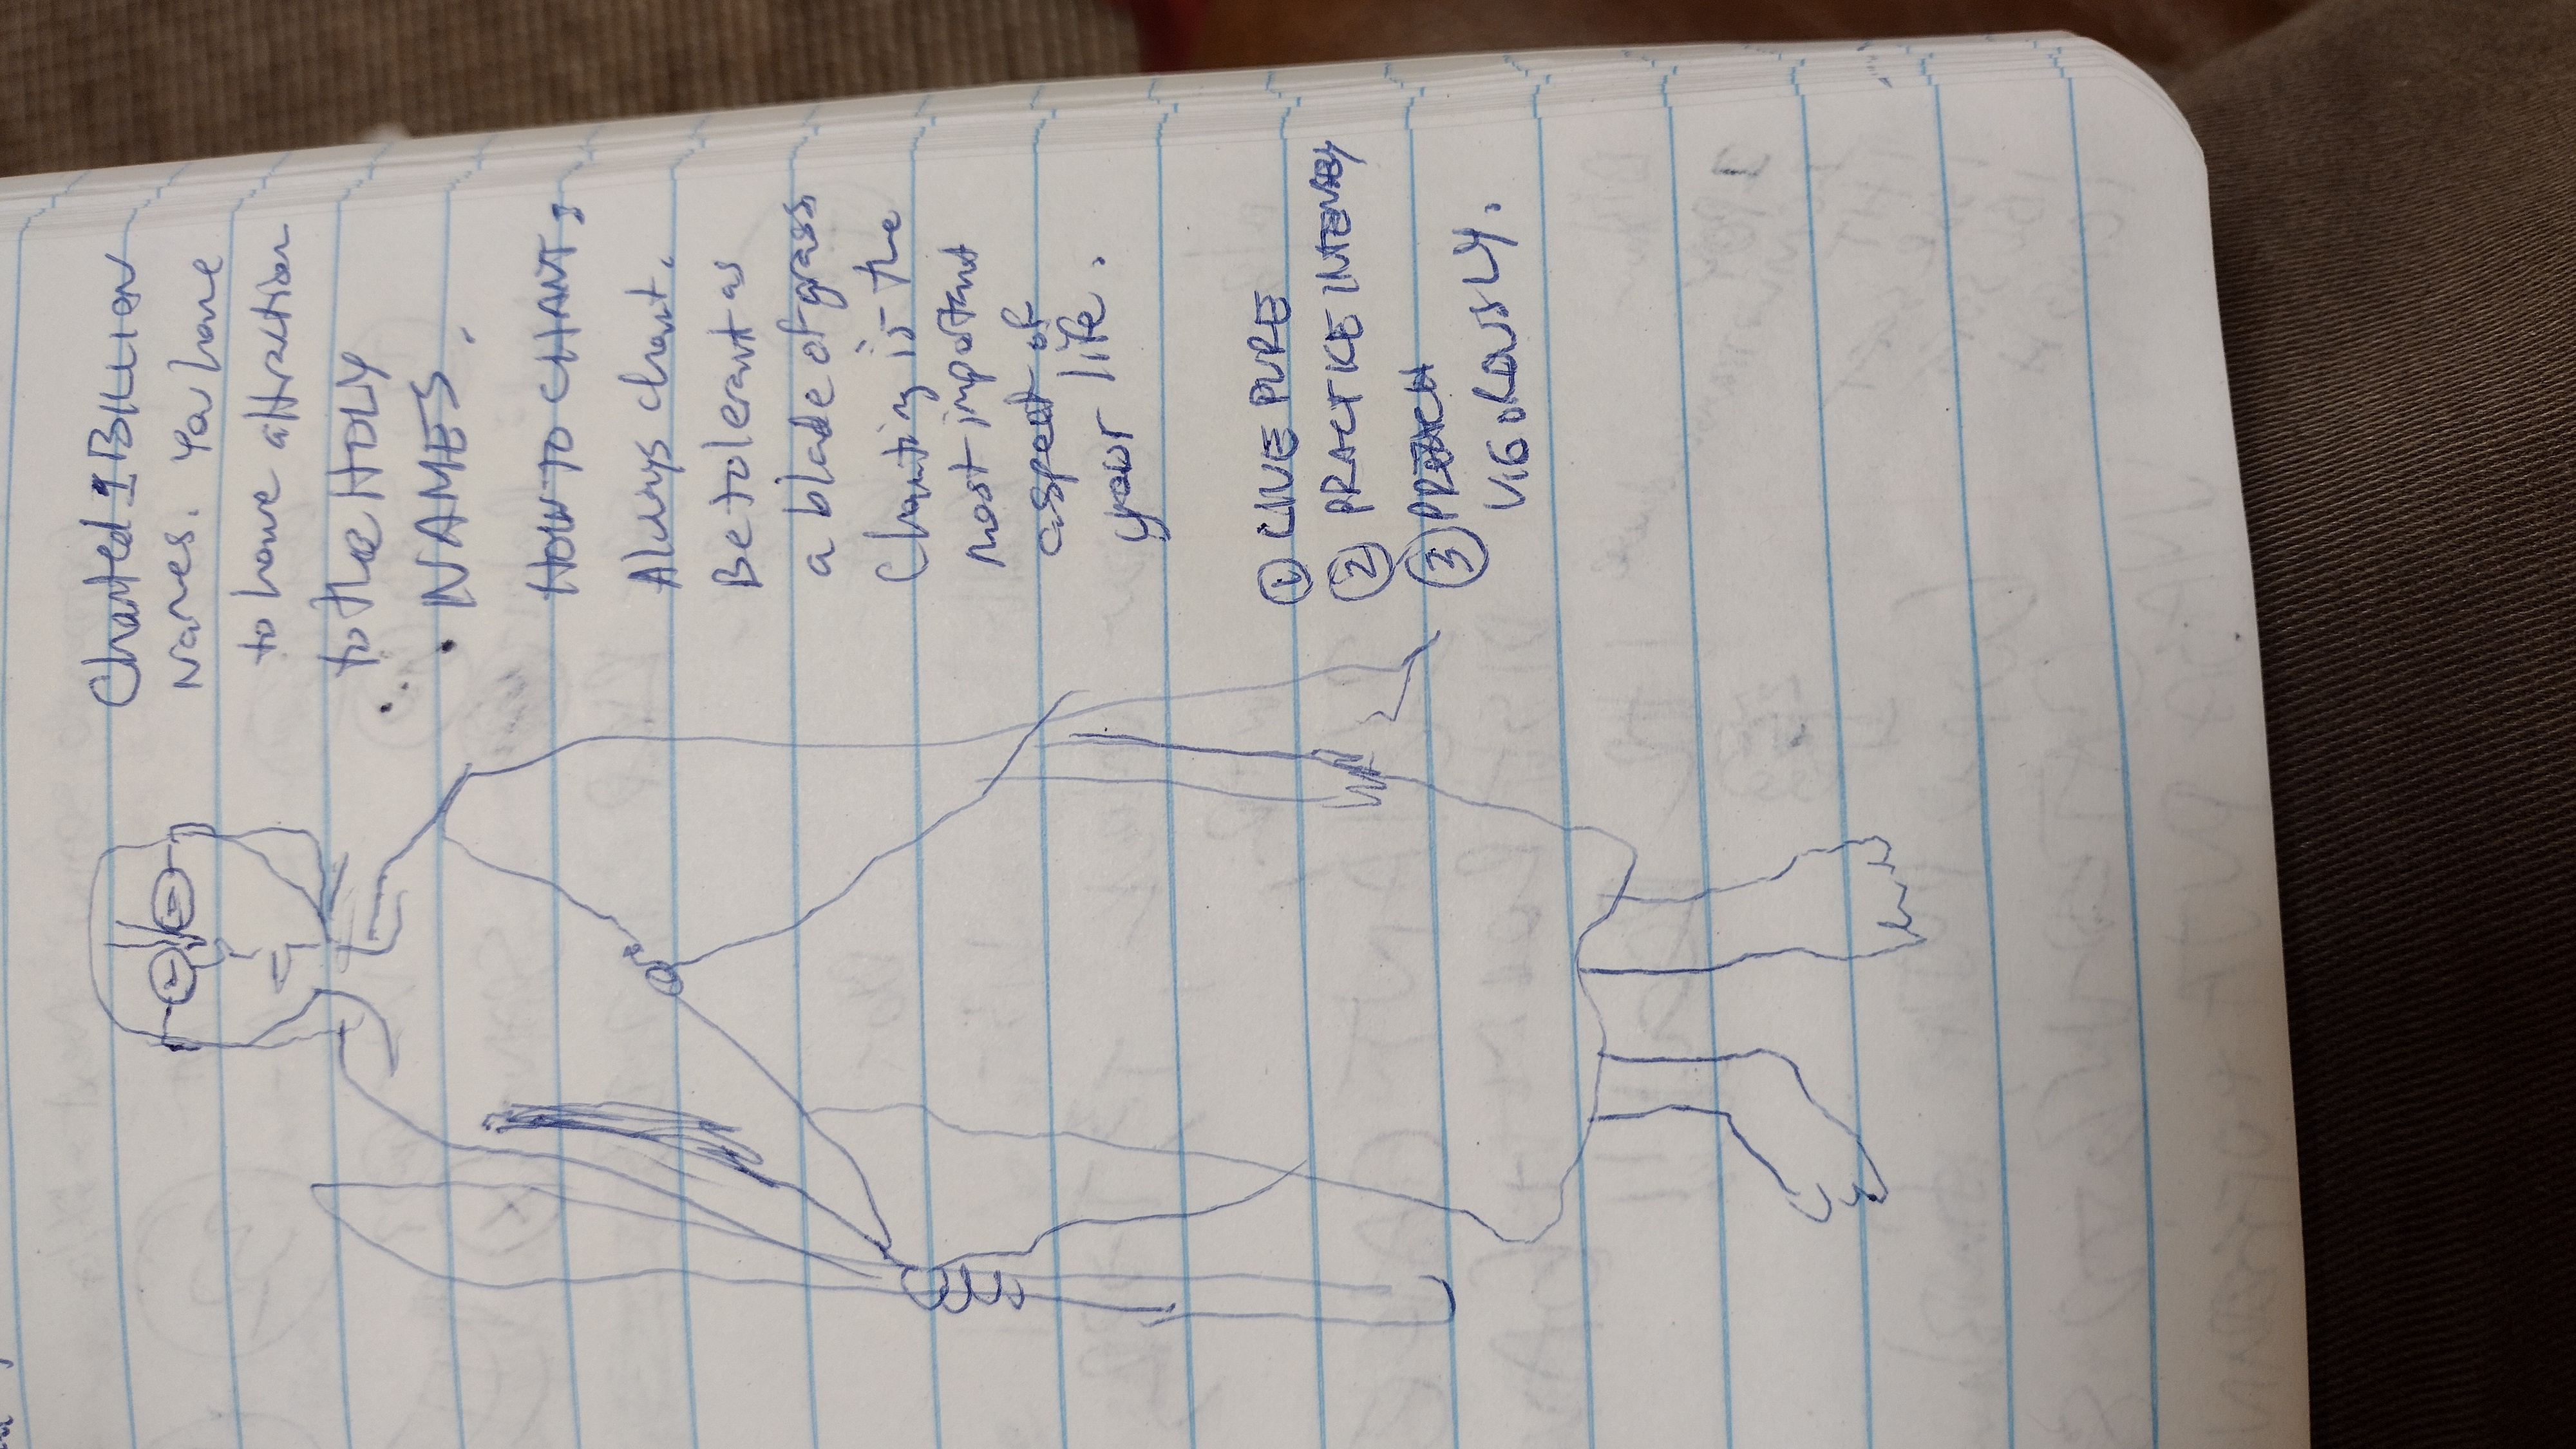 Chanted 1 BILLION
Names. You have
to have attraction
to the HOLY
NAMES.
HOW TO CHANT?
Always chant.
Be tolerant as
a blade of grass
Chanting is the
most important
aspect of
your life.
① LIVE PURE
② PRACTICE INTENSELY
③ PREACH
VIGOROUSLY.